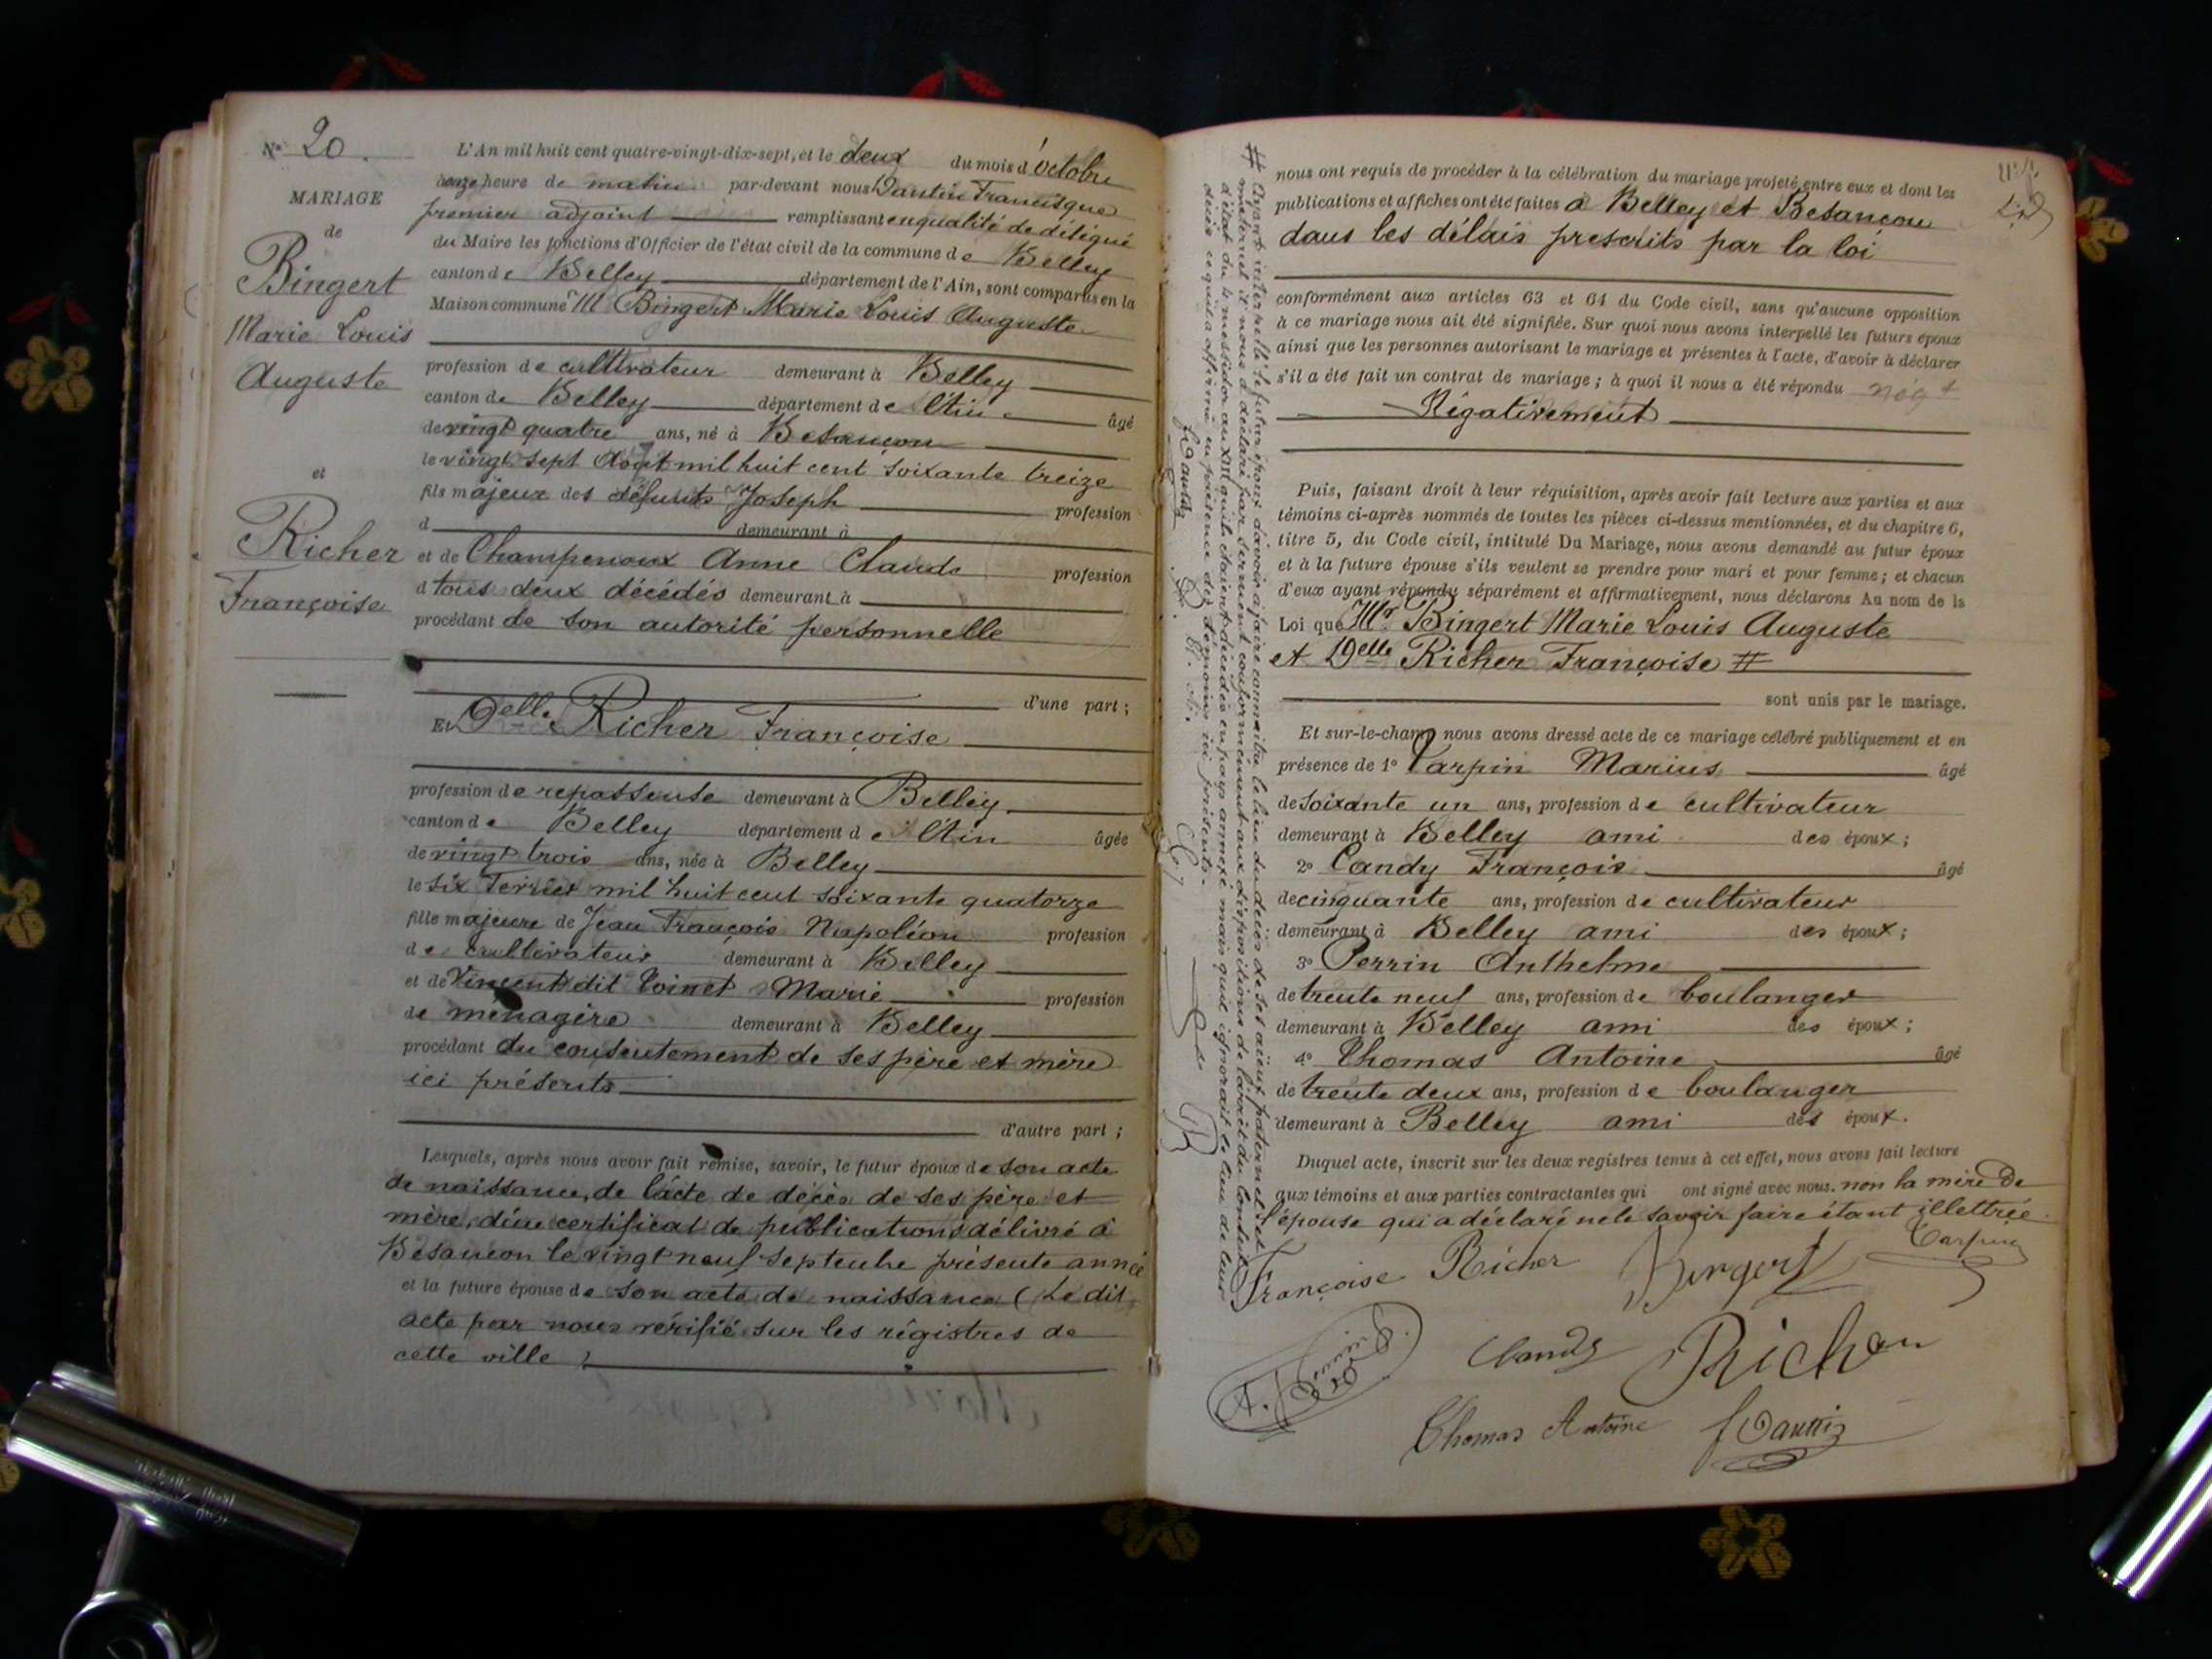 N° 20.
MARIAGE
de
Bingert
Marie Louis
Auguste
et
Richer
Françoise
L'An mil huit cent quatre-vingt-dix-sept, et le deux du mois d'octobre
heure de matin par-devant nous Dantin Francisque
premier adjoint remplissant en qualité de délégué
du Maire les fonctions d'Officier de l'état civil de la commune de Belley
canton de Belley département de l'Ain, sont comparus en la
Maison commune M Bingert Marie Louis Auguste
profession de cultivateur demeurant à Belley
canton de Belley département de l'Ain âgé
de vingt quatre ans, né à Besançon
le vingt sept Août mil huit cent soixante treize
fils majeur des défunts Joseph profession
d demeurant à
et de Champenoux Anne Claude profession
d tous deux décédés demeurant à
procédant de son autorité personnelle
d'une part ;
Et Delle Richer Françoise
profession de repasseuse demeurant à Belley
canton de Belley département de l'Ain âgée
de vingt trois ans, née à Belley
le six Février mil huit cent soixante quatorze
fille majeure de Jean François Napoléon profession
de cultivateur demeurant à Belley
et de Vincent dit Toinet Marie profession
de ménagère demeurant à Belley
procédant du consentement de ses père et mère
ici présents
d'autre part ;
Lesquels, après nous avoir fait remise, savoir, le futur époux de son acte
de naissance, de l'acte de décès de ses père et
mère, d'un certificat de publications délivré à
Besançon le vingt neuf septembre présente année
et la future épouse de son acte de naissance (Le dit
acte par nous vérifié sur les régistres de
cette ville)
# Ayant interpellé le futur époux d'avoir à faire connaître le lieu du décès de ses aïeux paternels et
maternels il nous a déclaré par serment conformément aux dispositions de l'arrêt du Conseil
d'état du 4 messidor an XIII qu'ils étaient décédés en pays annexé mais qu'il ignorait le lieu de leur
décès ce qu'il a affirmé en présence des témoins ici présents.
nous ont requis de procéder à la célébration du mariage projeté entre eux et dont les
publications et affiches ont été faites à Belley et Besançon
dans les délais prescrits par la loi
conformément aux articles 63 et 64 du Code civil, sans qu'aucune opposition
à ce mariage nous ait été signifiée. Sur quoi nous avons interpellé les futurs époux
ainsi que les personnes autorisant le mariage et présentes à l'acte, d'avoir à déclarer
s'il a été fait un contrat de mariage ; à quoi il nous a été répondu négt
Négativement
Puis, faisant droit à leur réquisition, après avoir fait lecture aux parties et aux
témoins ci-après nommés de toutes les pièces ci-dessus mentionnées, et du chapitre 6,
titre 5, du Code civil, intitulé Du Mariage, nous avons demandé au futur époux
et à la future épouse s'ils veulent se prendre pour mari et pour femme ; et chacun
d'eux ayant répondu séparément et affirmativement, nous déclarons Au nom de la
Loi que Mr Bingert Marie Louis Auguste
et Delle Richer Françoise #
sont unis par le mariage.
Et sur-le-champ nous avons dressé acte de ce mariage célébré publiquement et en
présence de 1° Carpin Marius âgé
de soixante un ans, profession de cultivateur
demeurant à Belley ami des époux ;
2° Candy François âgé
de cinquante ans, profession de cultivateur
demeurant à Belley ami des époux ;
3° Perrin Anthelme
de trente neuf ans, profession de boulanger
demeurant à Belley ami des époux ;
4° Thomas Antoine âgé
de trente deux ans, profession de boulanger
demeurant à Belley ami des époux.
Duquel acte, inscrit sur les deux registres tenus à cet effet, nous avons fait lecture
aux témoins et aux parties contractantes qui ont signé avec nous. non la mère de
l'épouse qui a déclaré ne le savoir faire étant illettrée.
Françoise Richer Bingert Carpin
A. Perrin Candy Richer
Thomas Antoine F Dantin